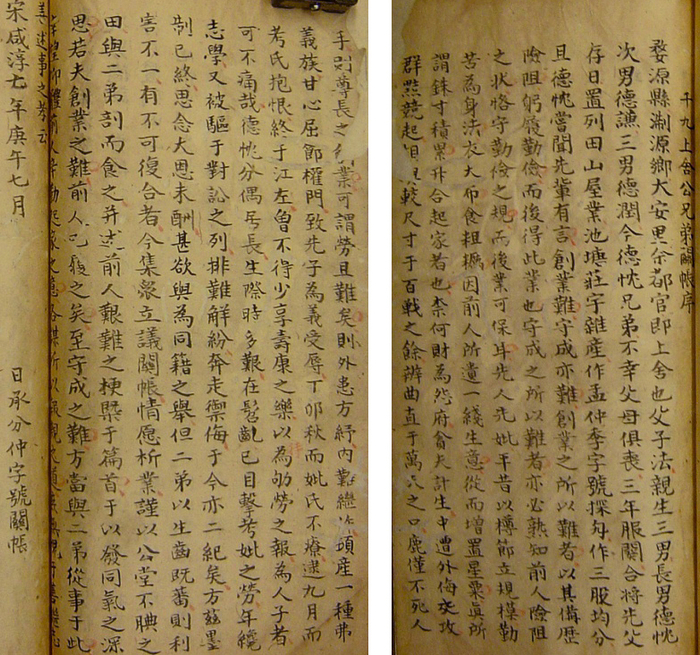 千九上舍公兄弟鬮帳序
婺源縣浙源鄉大安里余都官即上舍也父子法親生三男長男德忱
次男德譓三男德潤今德忱兄弟不幸父母俱喪三年服闋合將先父
存日置列田山屋業池塘莊宇雜産作孟仲季字號探勾作三股均分
且德忱嘗聞先輩有言創業難守成亦難創業之所以難者以其備歷
險阻躬履勤儉而後得此業也守成之所以難者亦必熟知前人險阻
之狀恪守勤儉之規而後業可保耳先人先妣平昔以樽節立規模勤
苦為身法衣大布食粗糲因前人所遺一綫生意從而增置星粟奐所
謂銖寸積累升合起家者也柰何財為怨府翕夫計生中遭外侮交攻
群黠競起較尺寸于百戰之餘辨曲直于萬人之口麁僅不死人
手則尊長之業可謂勞且難矣則外患方紓内難繼作頭産一種弗
義族甘心屈節權門致先子為義受辱丁卯秋而妣氏不療逮九月而
考氏抱恨終于江左曾不得少享壽康之樂以為劬勞之報為人子者
可不痛哉德忱分偶居長生際時多艱在髫齔已目擊考妣之勞年纔
志學又被驅于對訟之列排難解紛奔走禦侮于今亦二紀矣方茲墨
制已終思念大恩未酬甚欲與為同籍之舉但二弟以生齒既蕃則利
害不一有不可復合者今集衆立議鬮帳情愿析業謹以公堂不腆之
田與二弟剖而食之并述前人艱難之梗槩于篇首于以發同氣之深
思若夫創業之難前人已履之矣至守成之難方當與二弟從事于此
述事之孝云
宋咸淳七年庚午七月 日承分仲字號鬮帳